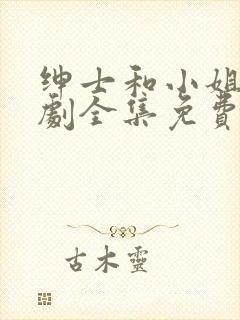 绅士和小姐
劇全集免費
古木靈